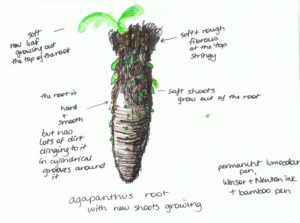 soft
new leaf
growing out
the top of the root
soft rough
fibrous
at the top
stringy
the root is
hard
+
smooth
but has
lots of dirt
clinging to it
in cylindrical
grooves around
it
soft shoots
grow out of the root
agapanthus root
with new shoots growing
permanent lumocolor
pen,
Winsor + Newton ink
+ bamboo pen